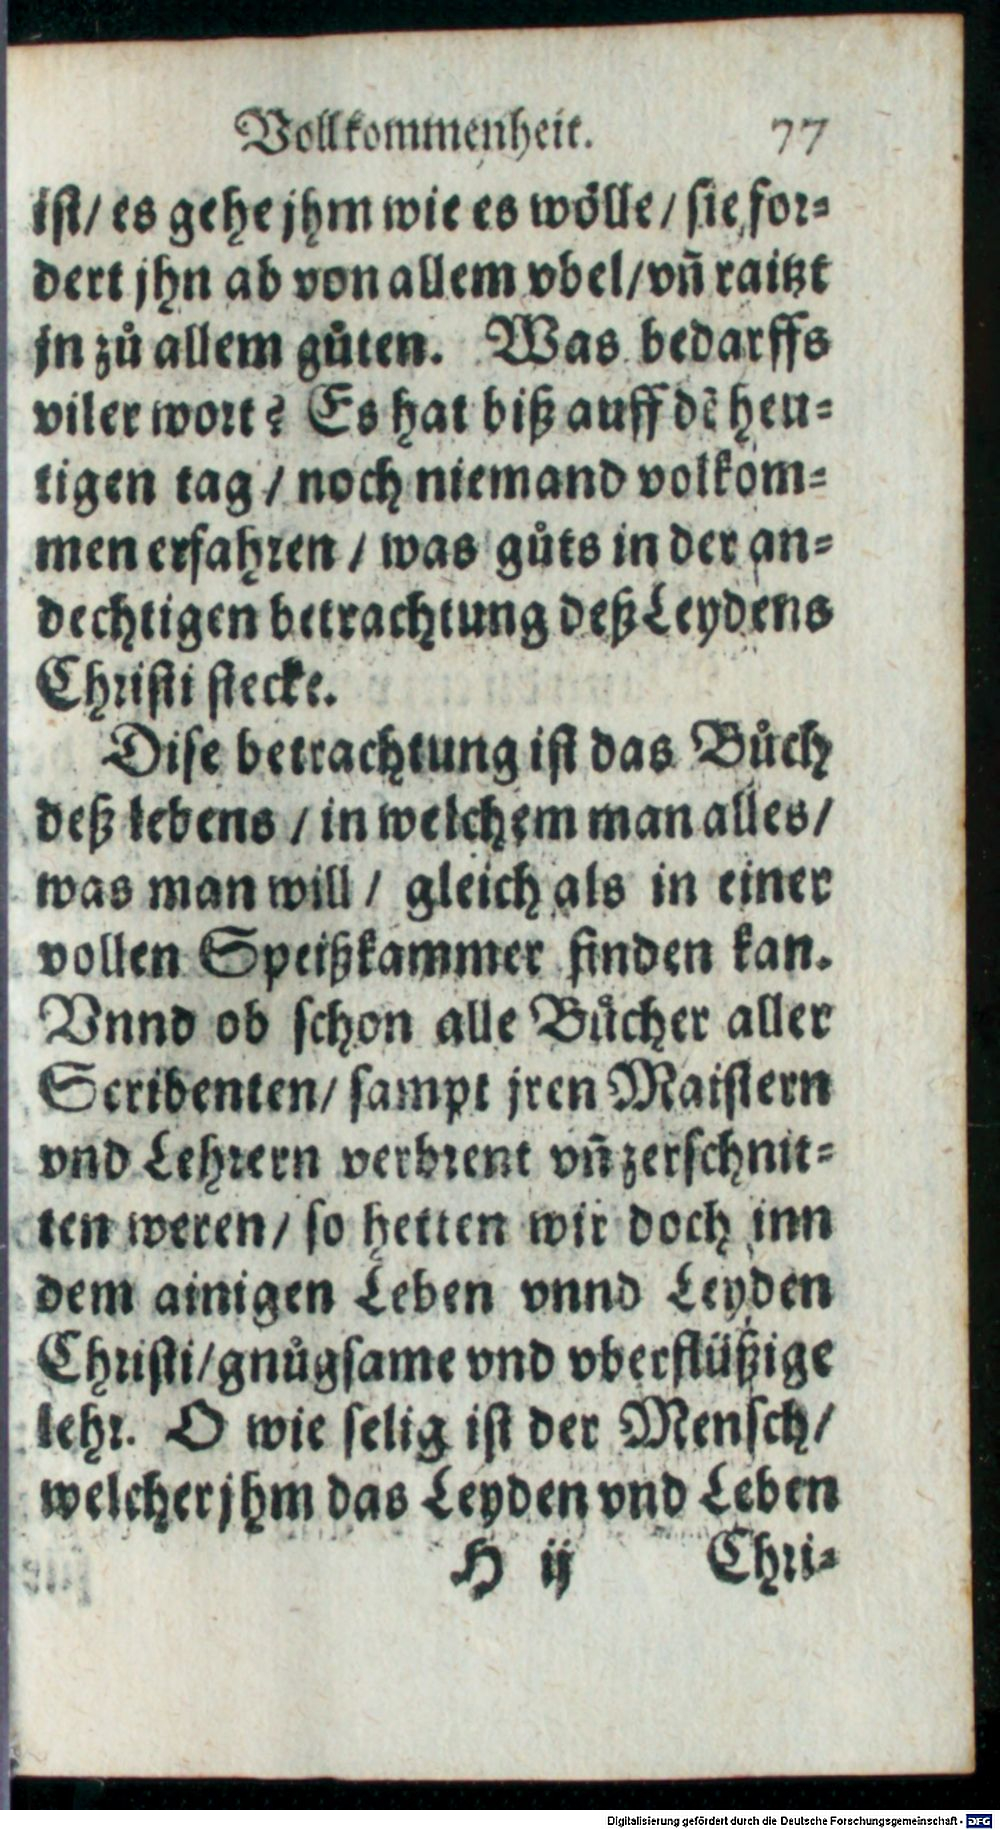 Vollkommenheit. 77
ist/ es gehe jhm wie es wölle/ sie for-
dert jhn ab von allem vbel/ vn̄ raitzt
jn zů allem gůten. Was bedarffs
viler wort? Es hat biß auff dē heu-
tigen tag / noch niemand volkom-
men erfahren / was gůts in der an-
dechtigen betrachtung deß Leydens
Christi stecke.
Dise betrachtung ist das Bůch
deß lebens / in welchem man alles/
was man will / gleich als in einer
vollen Speißkammer finden kan.
Vnnd ob schon alle Bůcher aller
Scribenten/ sampt jren Maistern
vnd Lehrern verbrent vn̄ zerschnit-
ten weren/ so hetten wir doch inn
dem ainigen Leben vnnd Leyden
Christi/ gnůgsame vnd vberflüßige
lehr. O wie selig ist der Mensch/
welcher jhm das Leyden vnd Leben
H ij Chri-
Digitalisierung gefördert durch die Deutsche Forschungsgemeinschaft - DFG